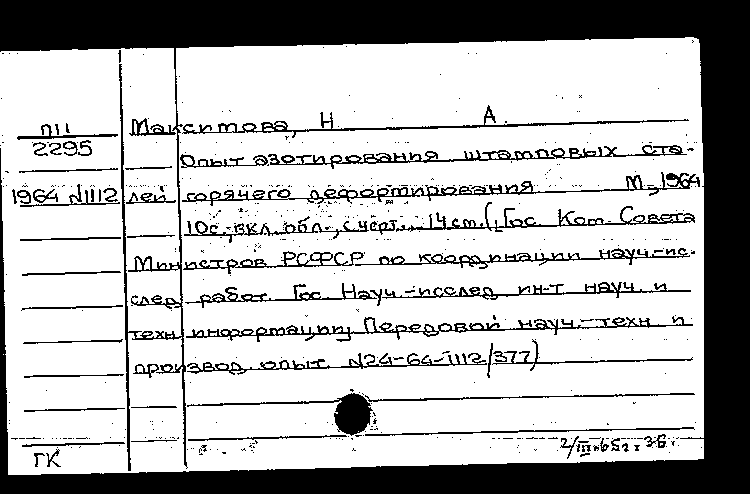 П11
2295
1964 N1112
Максимова, Н А.
Опыт азотирования штамповых ста-
лей горячего деформирования М., 1964
10с., вкл. обл., с черт. 14 см. (Гос. Ком. Совета
Министров РСФСР по координации науч.-ис-
след. работ. Гос. Науч.-исслед. ин-т науч. и
техн. информации. Передовой науч.-техн. и
производ. опыт. N24-64-1112/377)
ГК
2/III-65г.